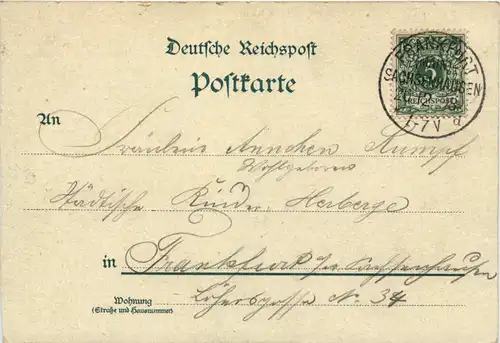 Deutsche Reichspost
Postkarte
FRANKFURT
SACHSENHAUSEN
6-7 V
REICHSPOST
An
Fräulein Annchen Kumpf
Wohlgeboren
Städtische Kinder Herberge
in Frankfurt Sachsenhausen
Wohnung
(Straße und Hausnummer)
Löhersgasse No. 34